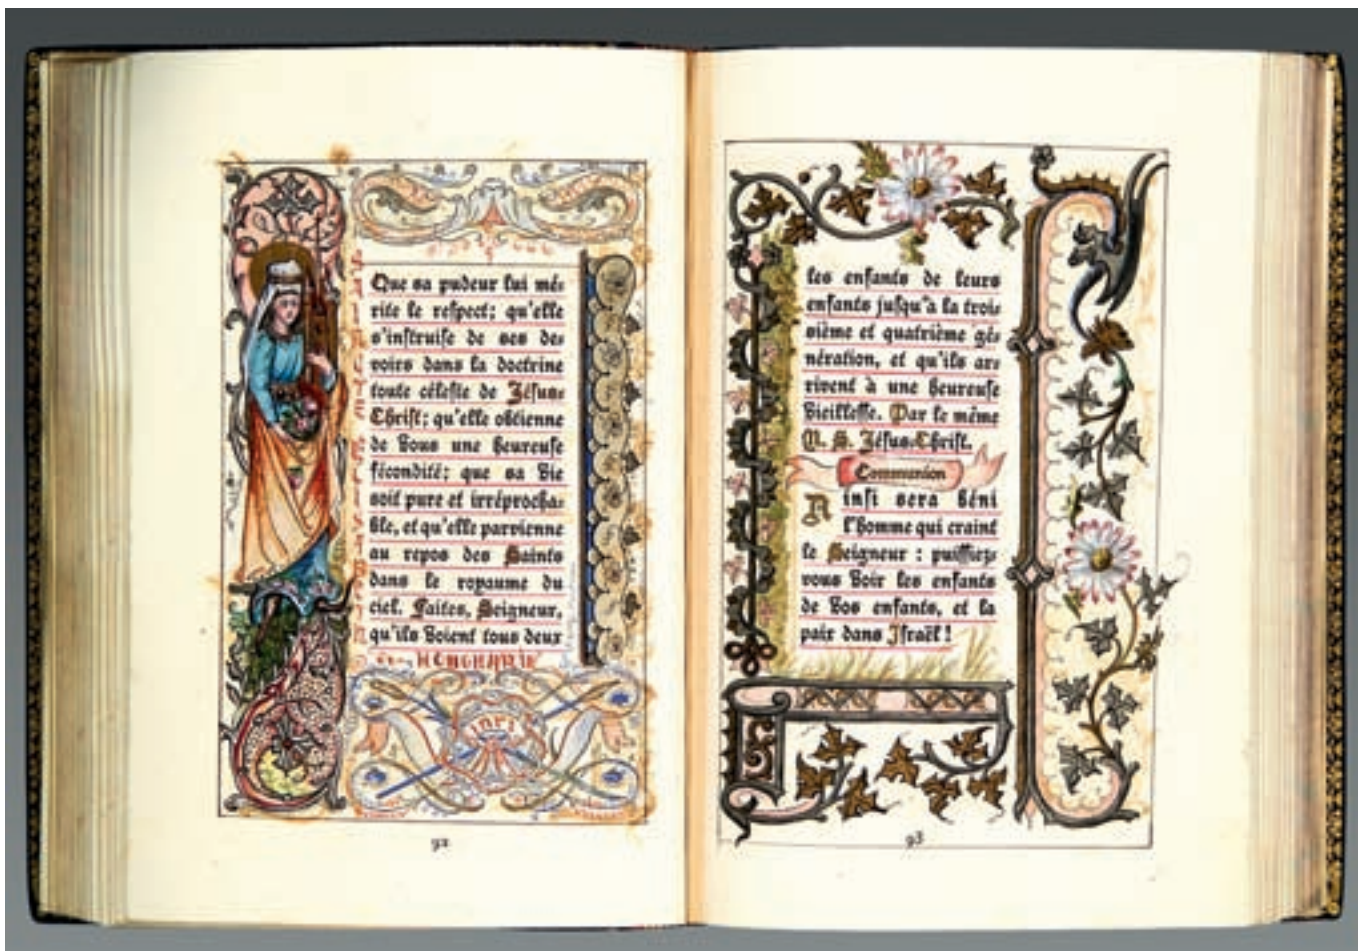 Que sa pudeur lui mé-
rite le reſpect; qu'elle
s'inſtruiſe de ses de-
voirs dans la doctrine
toute céleſte de Jéſus-
Chriſt; qu'elle obtienne
de vous une heureuſe
fécondité; que sa vie
soit pure et irréprocha-
ble, et qu'elle parvienne
au repos des Saints
dans le royaume du
ciel. Faites, Seigneur,
qu'ils voient tous deux
INRI
92
les enfants de leurs
enfants juſqu'à la troi-
sième et quatrième gé-
nération, et qu'ils ar-
rivent à une heureuſe
vieilleſſe. Par le même
N. S. Jéſus-Chriſt.
Communion
Ainſi sera béni
l'homme qui craint
le Seigneur : puiſſiez-
vous voir les enfants
de vos enfants, et la
paix dans Iſraël !
93